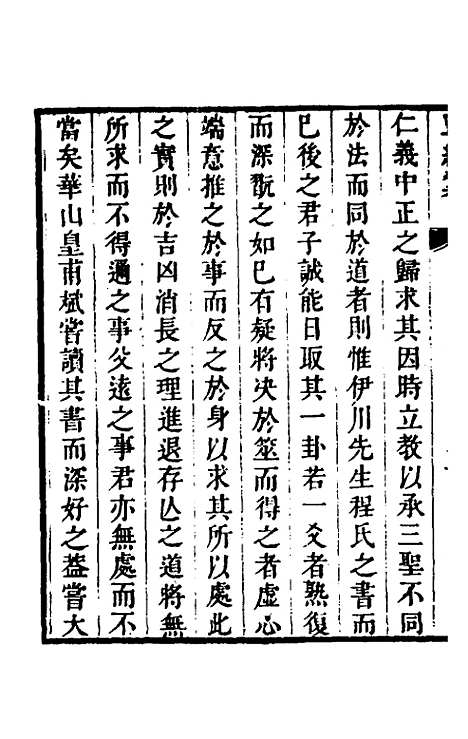 仁義中正之歸求其因時立教以承三聖不同
於法而同於道者則惟伊川先生程氏之書而
已後之君子誠能日取其一卦若一爻者熟復
而深翫之如已有疑將决於筮而得之者虛心
端意推之於事而反之於身以求其所以處此
之實則於吉凶消長之理進退存亾之道將無
所求而不得邇之事父遠之事君亦無處而不
當矣華山皇甫斌嘗讀其書而深好之葢嘗大